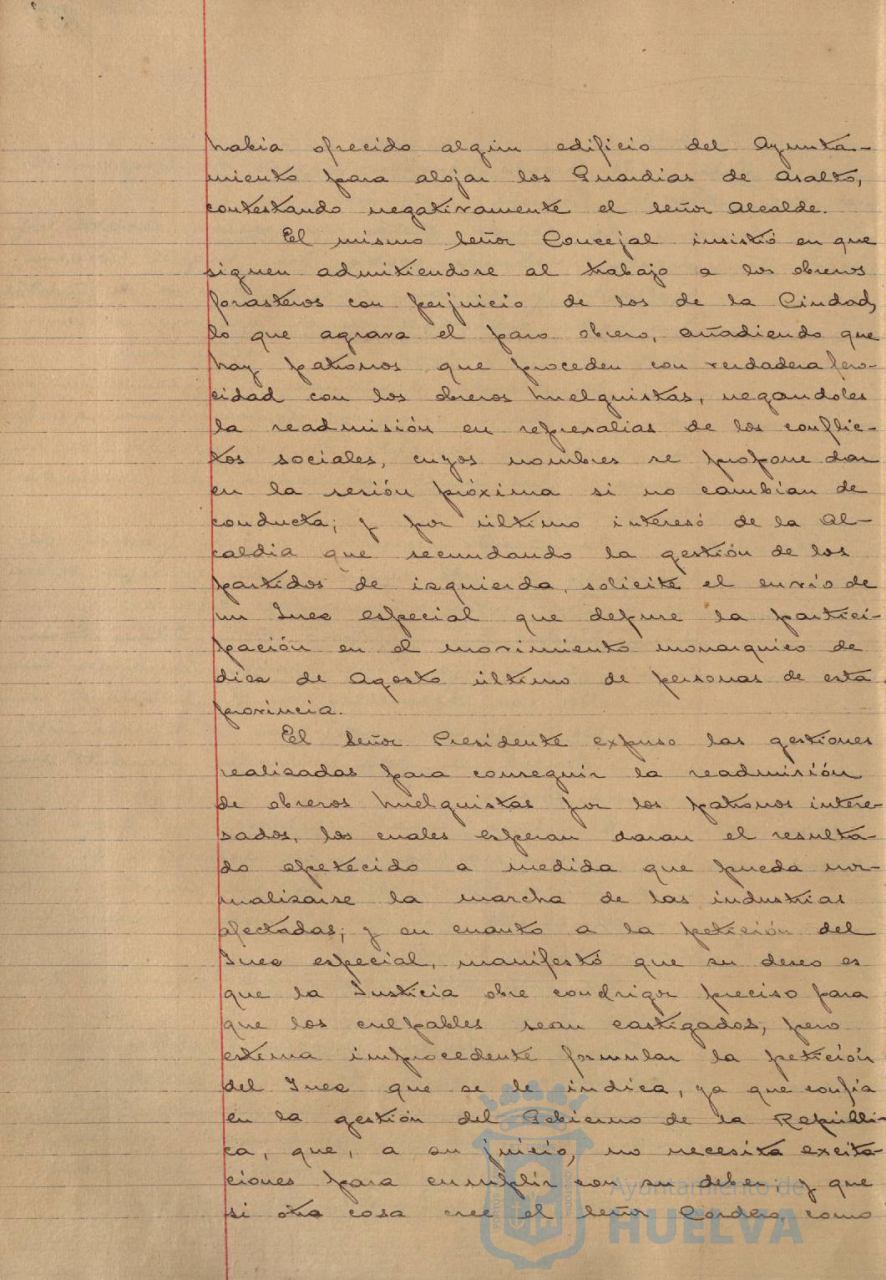 habia ofrecido algún edificio del Ayunta-
miento para alojar los Guardias de Asalto,
contestando negativamente el Señor Alcalde.
El mismo Señor Concejal insistió en que
siguen admitiendose al trabajo a los obreros
forasteros con perjuicio de los de la Ciudad,
lo que agrava el paro obrero, añadiendo que
hay patronos que proceden con verdadera fero-
cidad con los obreros huelguistas, negandoles
la readmisión en represalias de los conflic-
tos sociales, cuyos nombres se propone dar
en la sesión próxima si no cambian de
conducta; y por último interesó de la Al-
caldia que secundando la gestión de los
partidos de izquierda, solicite el envío de
un Juez especial que depure la partici-
pación en el movimiento monarquico de
diez de Agosto último de personas de esta
provincia.
El Señor Presidente expuso las gestiones
realizadas para conseguir la readmisión
de obreros huelguistas por los patronos intere-
sados, los cuales esperan daran el resulta-
do apetecido a medida que pueda nor-
malizarse la marcha de las industrias
afectadas; y en cuanto a la petición del
Juez especial, manifestó que su deseo es
que la Justicia obre con rigor preciso para
que los culpables sean castigados, pero
estima improcedente formular la petición
del Juez que se le indica, ya que confía
en la gestión del Gobierno de la Repúbli-
ca, que, a su juicio, no necesita excita-
ciones para cumplir con su deber, y que
si otra cosa cree el Señor Cordero, como
Ayuntamiento de
HUELVA